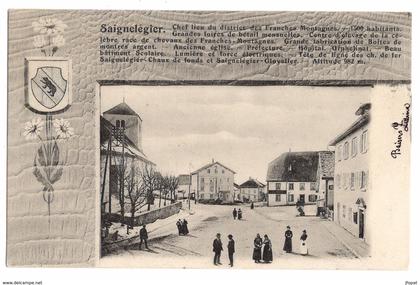 Saignelégier. Chef lieu du district des Franches Montagnes. - 1500 habitants.
Grandes foires de bétail mensuelles. Centre d'élevage de la cé-
lèbre race de chevaux des Franches Montagnes. Grande fabrication de Boîtes de
montres argent. - Ancienne église. - Préfecture. - Hôpital. Orphelinat. - Beau
bâtiment scolaire. Lumière et force électriques. - Tête de ligne des ch. de fer
Saignelégier-Chaux de fonds et Saignelégier-Glovelier. - Altitude 982 m.